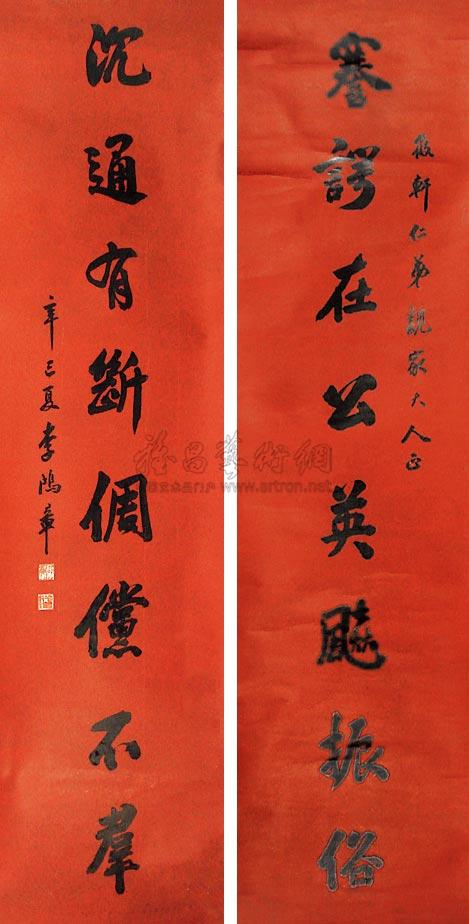 謇諤在公英飈振俗
軒仁弟親家大人正
沉通有斷倜儻不羣
辛巳夏李鴻章
雅昌藝術網
www.artron.net